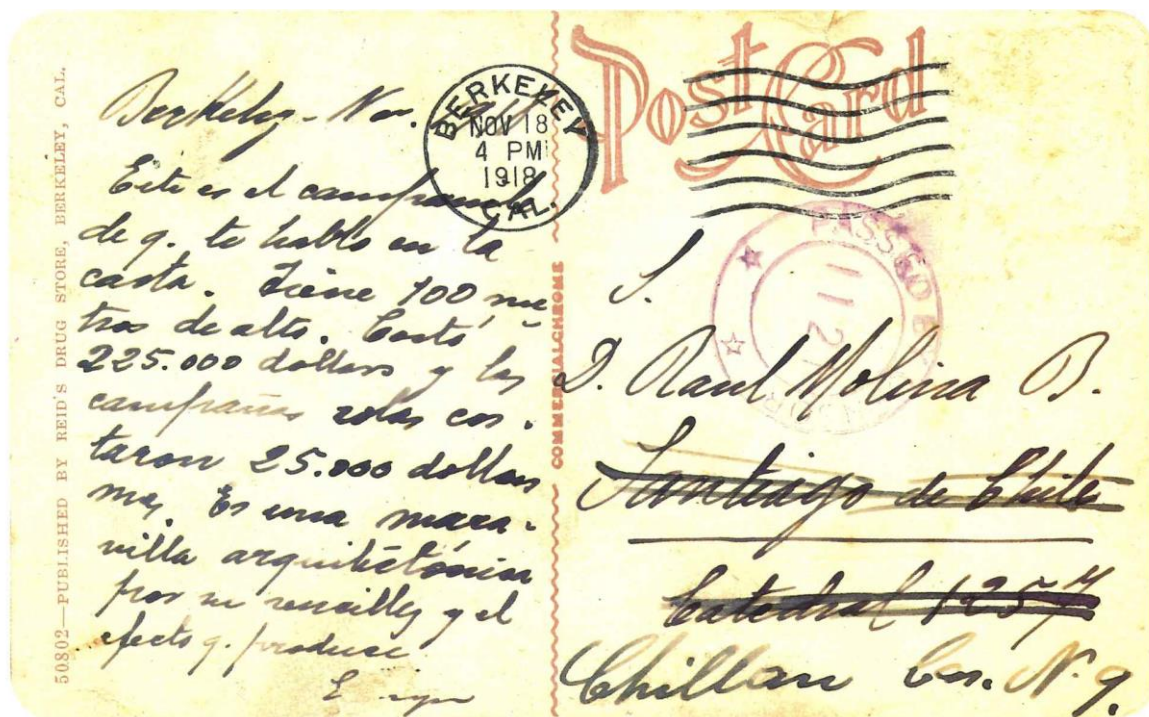 50802—PUBLISHED BY REID'S DRUG STORE, BERKELEY, CAL.
Berkeley - Nov.
Este es el campanile
de q. te hablo en la
carta. Tiene 100 me
tros de alto. Costó
225.000 dollars y las
campanas solas cos-
taron 25.000 dollars
Es una mara-
villa arquitectónica
por su sencillez y el
efecto q. produce
BERKELEY
NOV 18
4 PM
1918
CAL.
COMMERCIALCHROME
Post Card
PASSED
S.
D. Raul Molina B.
Santiago de Chile
Catedral 1257
Chillan Cas. Nº 9.